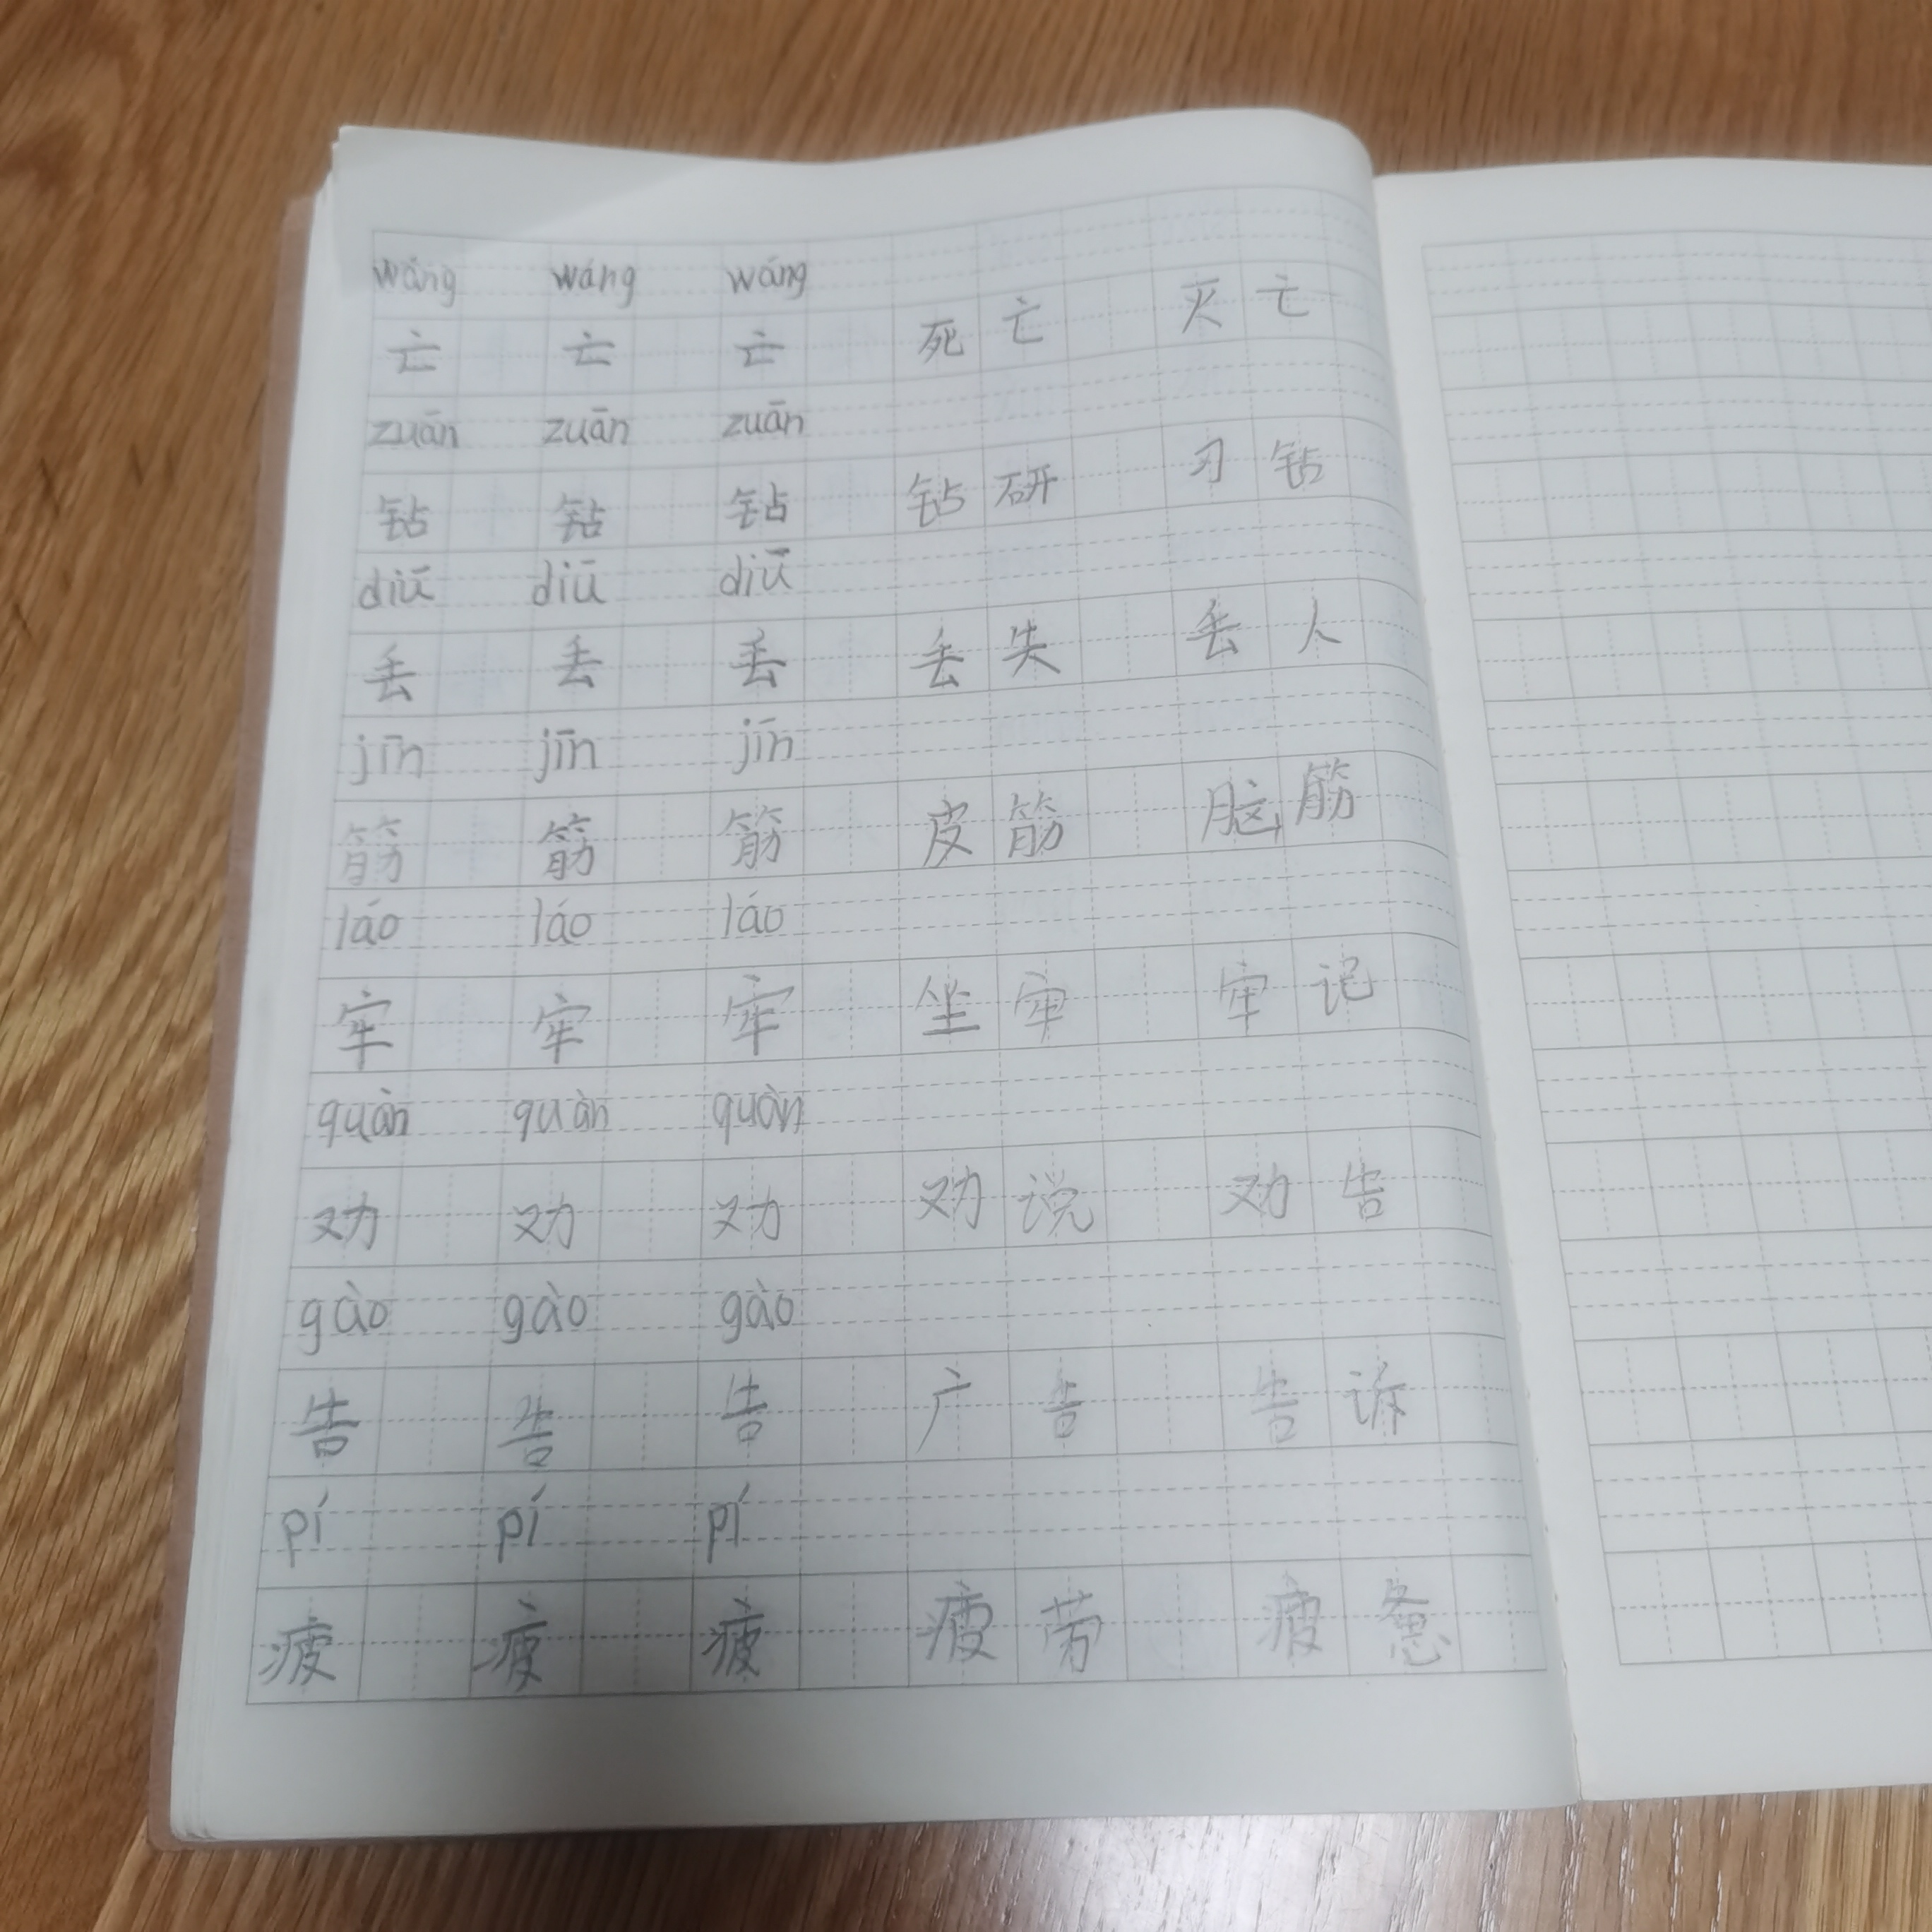 wáng wáng wáng
亡 亡 亡 死亡 灭亡
zuān zuān zuān
钻 钻 钻 钻研 刁钻
diū diū diū
丢 丢 丢 丢失 丢人
jīn jīn jīn
筋 筋 筋 皮筋 脑筋
láo láo láo
牢 牢 牢 坐牢 牢记
quàn quàn quàn
劝 劝 劝 劝说 劝告
gào gào gào
告 告 告 广告 告诉
pí pí pí
疲 疲 疲 疲劳 疲惫